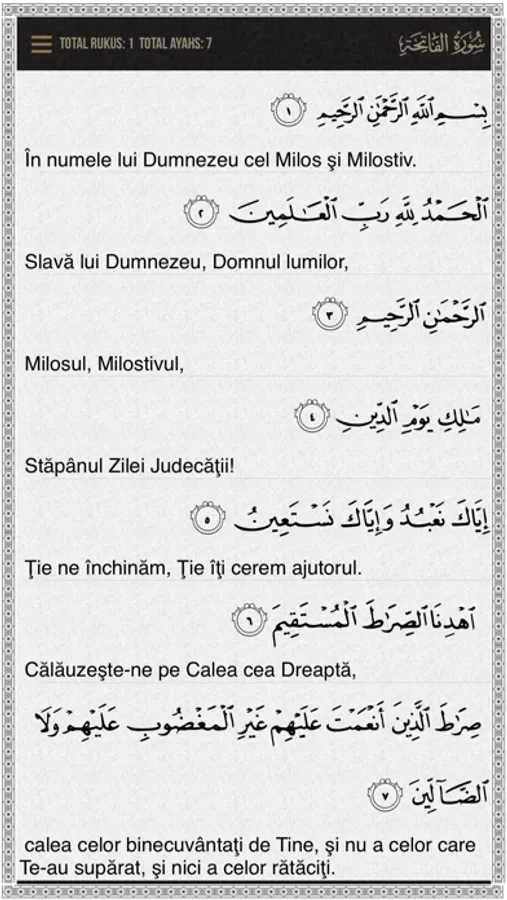 TOTAL RUKUS: 1 TOTAL AYAHS: 7 سُورَةُ الفَاتِحَة
بِسْمِ ٱللَّهِ ٱلرَّحْمَٰنِ ٱلرَّحِيمِ ١
În numele lui Dumnezeu cel Milos şi Milostiv.
ٱلْحَمْدُ لِلَّهِ رَبِّ ٱلْعَٰلَمِينَ ٢
Slavă lui Dumnezeu, Domnul lumilor,
ٱلرَّحْمَٰنِ ٱلرَّحِيمِ ٣
Milosul, Milostivul,
مَٰلِكِ يَوْمِ ٱلدِّينِ ٤
Stăpânul Zilei Judecăţii!
إِيَّاكَ نَعْبُدُ وَإِيَّاكَ نَسْتَعِينُ ٥
Ţie ne închinăm, Ţie îţi cerem ajutorul.
ٱهْدِنَا ٱلصِّرَٰطَ ٱلْمُسْتَقِيمَ ٦
Călăuzeşte-ne pe Calea cea Dreaptă,
صِرَٰطَ ٱلَّذِينَ أَنْعَمْتَ عَلَيْهِمْ غَيْرِ ٱلْمَغْضُوبِ عَلَيْهِمْ وَلَا
ٱلضَّآلِّينَ ٧
calea celor binecuvântaţi de Tine, şi nu a celor care
Te-au supărat, şi nici a celor rătăciţi.